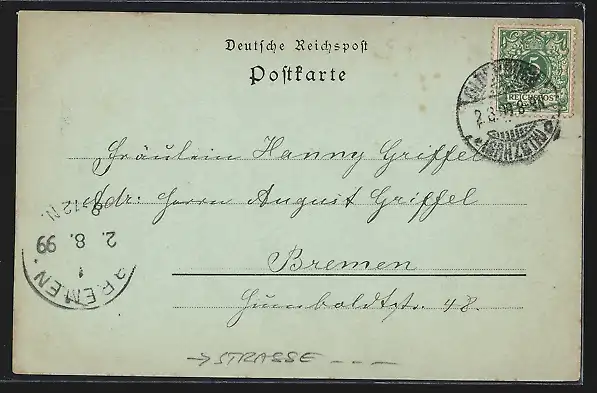 Deutsche Reichspost
Postkarte
5
REICHSPOST
2.8.99.6-8N.
Fräulein Hanny Griffel
Adr: Herrn August Griffel
Bremen
Humboldtstr. 48.
8-12 N.
2. 8. 99
1
BREMEN.
→ STRASSE